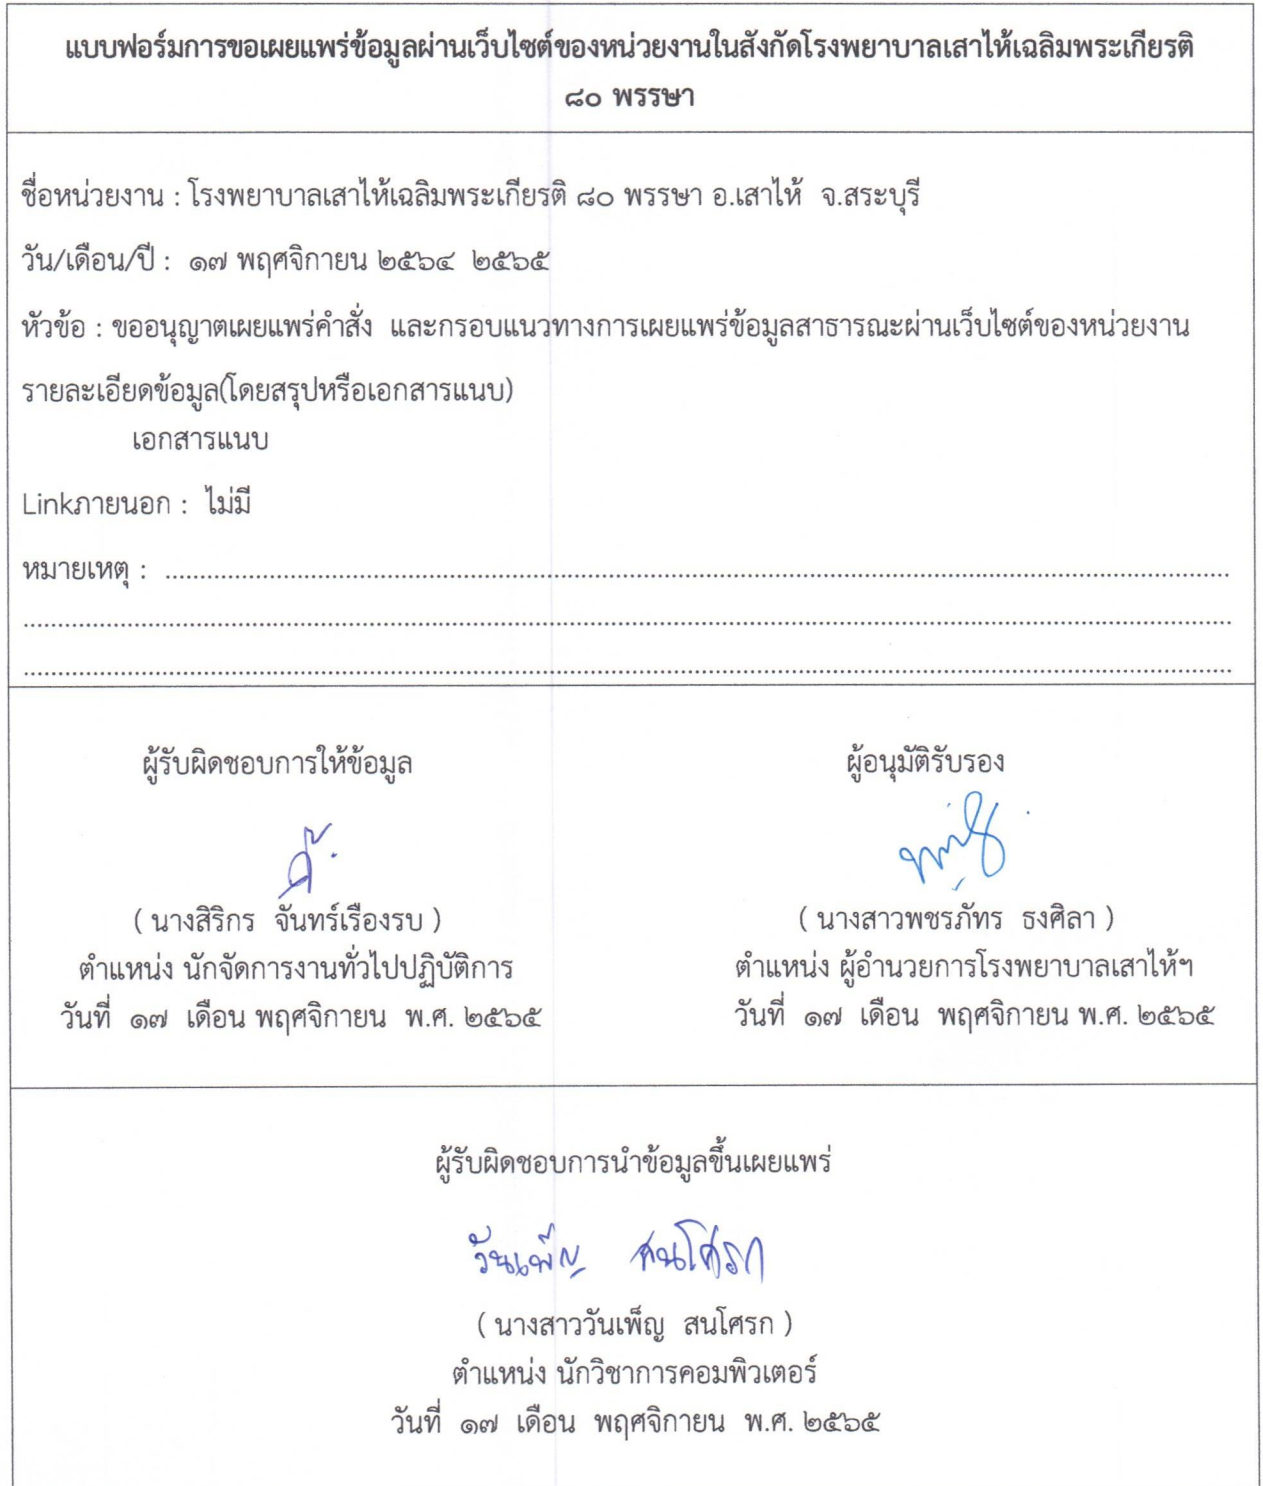 แบบฟอร์มการขอเผยแพร่ข้อมูลผ่านเว็บไซต์ของหน่วยงานในสังกัดโรงพยาบาลเสาไห้เฉลิมพระเกียรติ
๘๐ พรรษา
ชื่อหน่วยงาน : โรงพยาบาลเสาไห้เฉลิมพระเกียรติ ๘๐ พรรษา อ.เสาไห้ จ.สระบุรี
วัน/เดือน/ปี : ๑๗ พฤศจิกายน ๒๕๖๔ ๒๕๖๕
หัวข้อ : ขออนุญาตเผยแพร่คำสั่ง และกรอบแนวทางการเผยแพร่ข้อมูลสาธารณะผ่านเว็บไซต์ของหน่วยงาน
รายละเอียดข้อมูล(โดยสรุปหรือเอกสารแนบ)
เอกสารแนบ
Linkภายนอก : ไม่มี
หมายเหตุ :
ผู้รับผิดชอบการให้ข้อมูล
( นางสิริกร จันทร์เรืองรบ )
ตำแหน่ง นักจัดการงานทั่วไปปฏิบัติการ
วันที่ ๑๗ เดือน พฤศจิกายน พ.ศ. ๒๕๖๕
ผู้อนุมัติรับรอง
( นางสาวพชรภัทร ธงศิลา )
ตำแหน่ง ผู้อำนวยการโรงพยาบาลเสาไห้ฯ
วันที่ ๑๗ เดือน พฤศจิกายน พ.ศ. ๒๕๖๕
ผู้รับผิดชอบการนำข้อมูลขึ้นเผยแพร่
วันเพ็ญ สนโศรก
( นางสาววันเพ็ญ สนโศรก )
ตำแหน่ง นักวิชาการคอมพิวเตอร์
วันที่ ๑๗ เดือน พฤศจิกายน พ.ศ. ๒๕๖๕